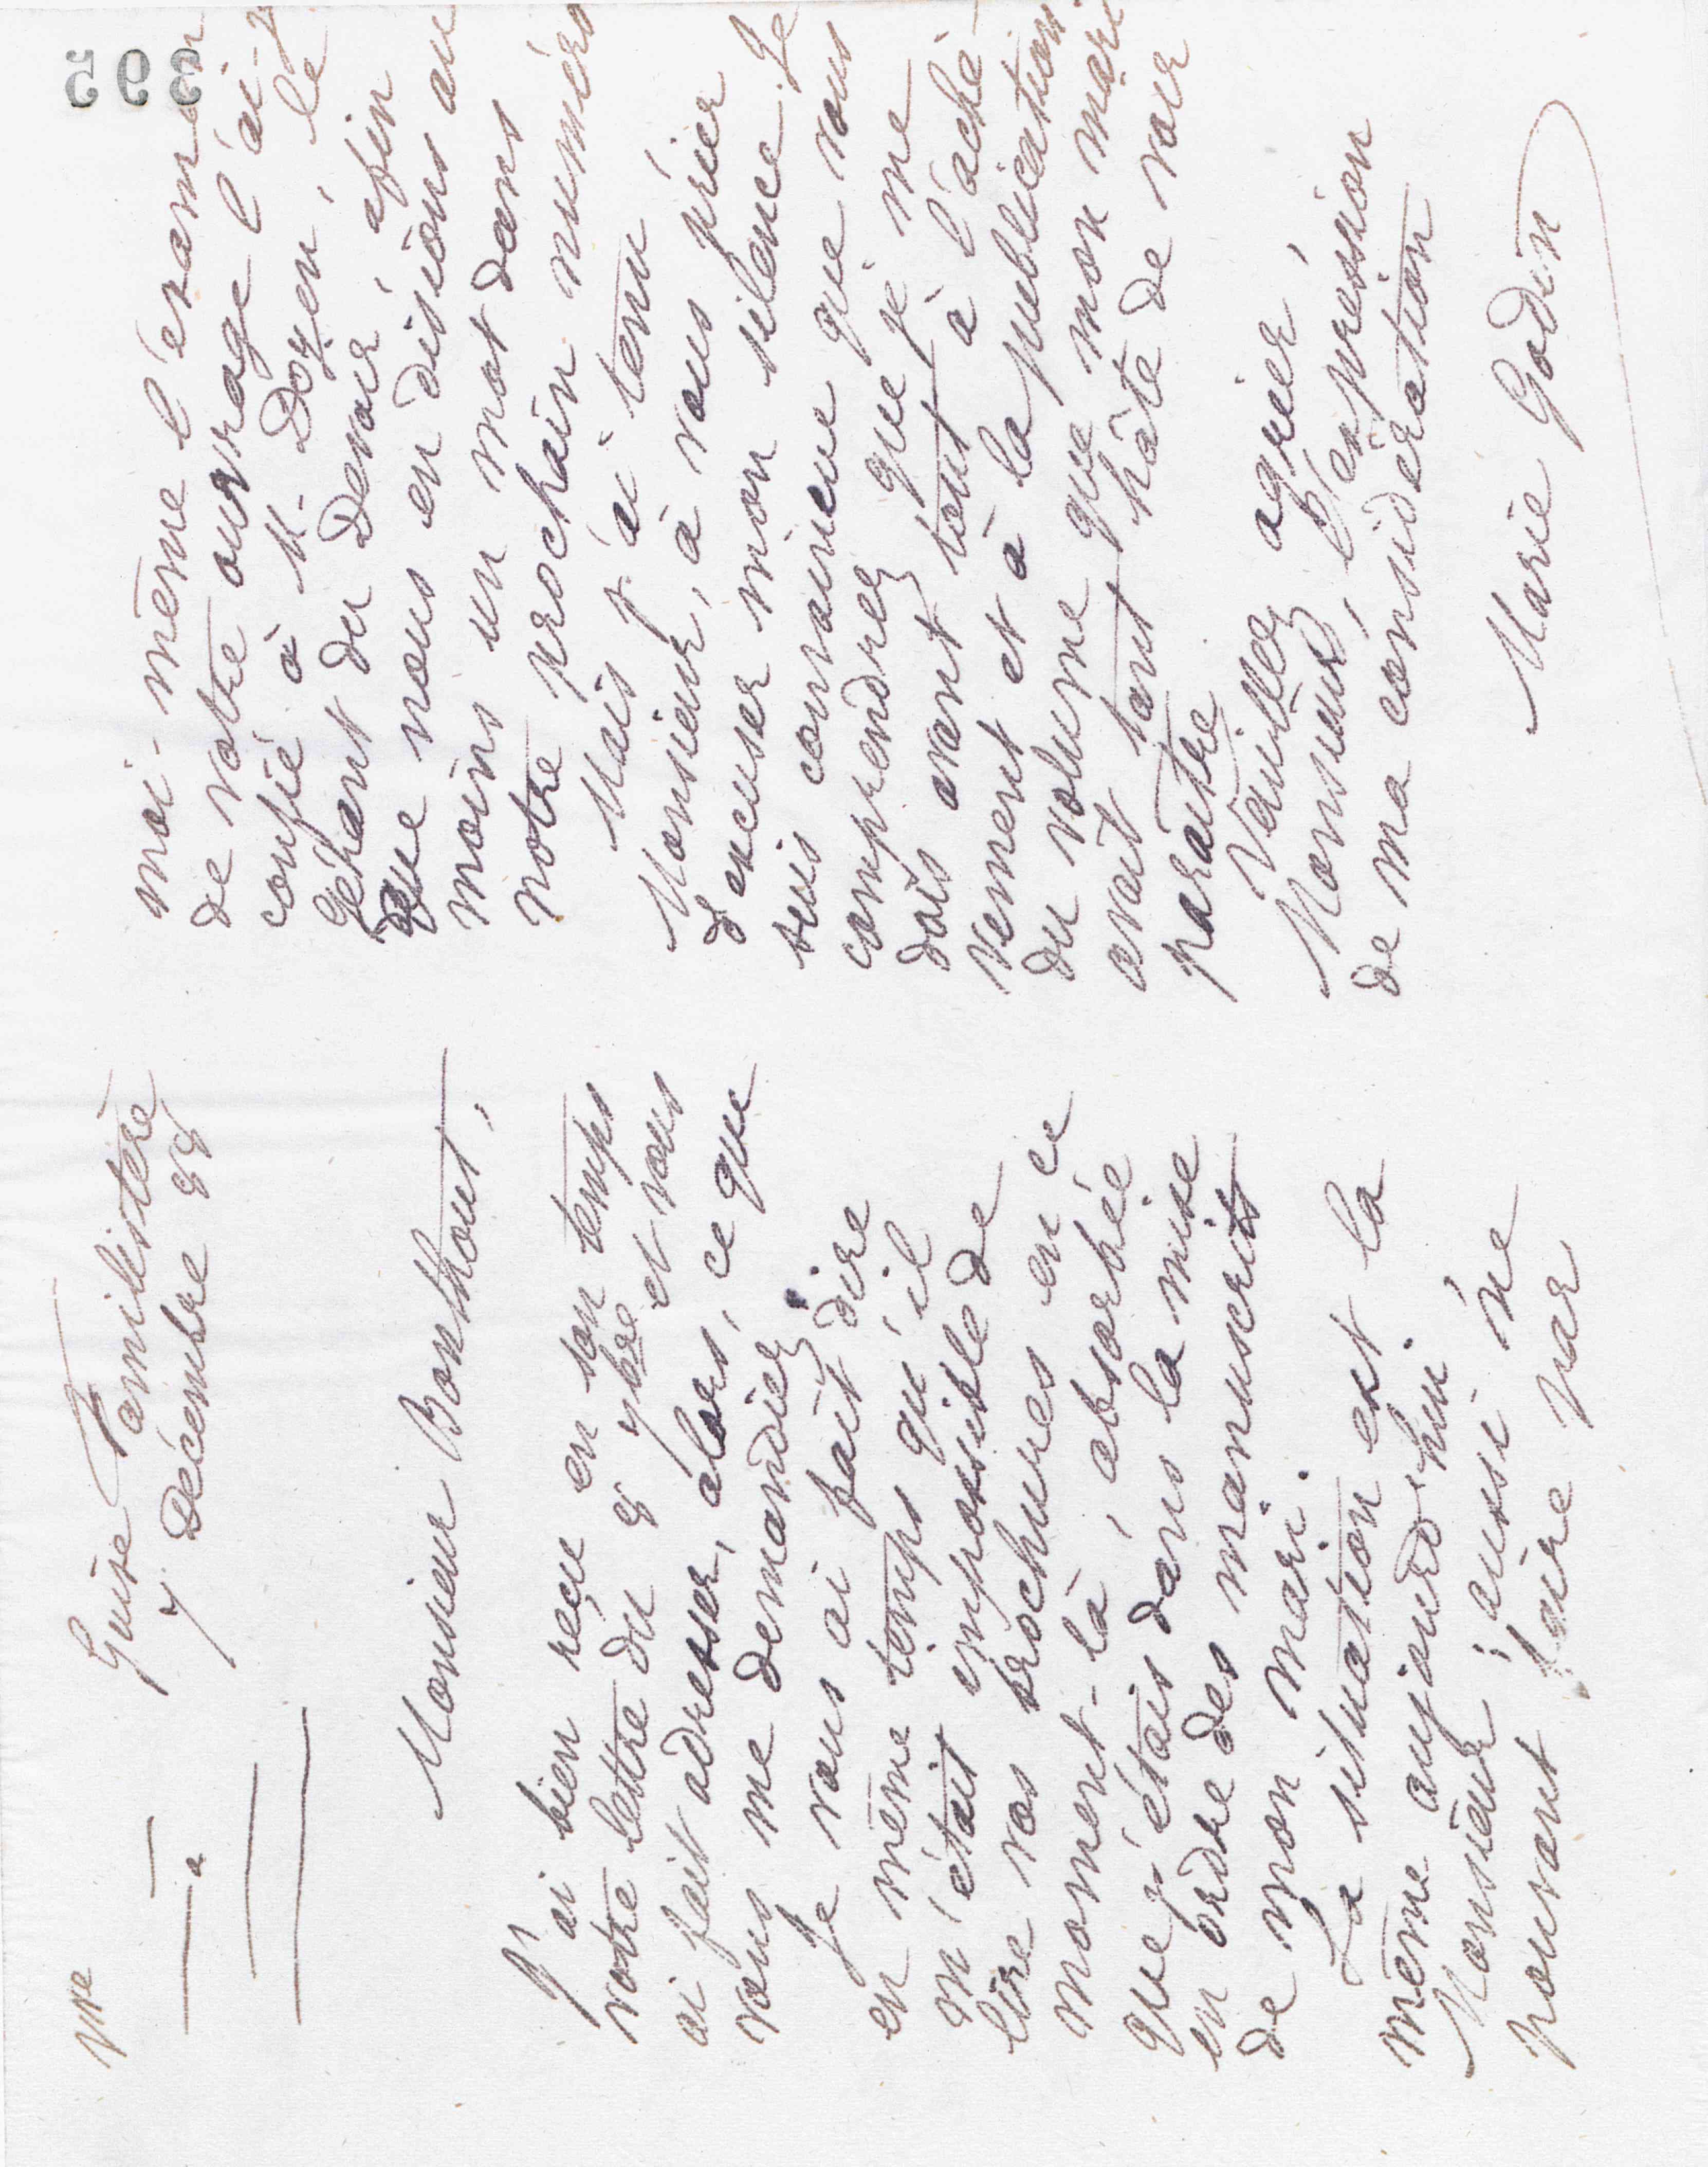 Guise Familistère
7 Décembre 88
Monsieur Bonthoux,
J'ai bien reçu en son temps
votre lettre du 8 7bre et vous
ai fait adresser, alors, ce que
vous me demandiez.
Je vous ai fait dire
en même temps qu'il
m'était impossible de
lire vos brochures en ce
moment-là, absorbée
que j'étais dans la mise
en ordre des manuscrits
de mon mari.
La situation est la
même aujourd'hui
Monsieur ; aussi ne
pouvant faire par
moi-même l'examen
de votre ouvrage l'ai-je
confié à M. Doyen, le
gérant du Devoir, afin
que nous en disions au
moins un mot dans
notre prochain numéro
Mais j'ai tenu
Monsieur, à vous prier
d'excuser mon silence. Je
suis convaincue que vous
comprendrez que je me
dois avant tout à l'achè-
vement et à la publication
du volume que mon mari
avait tant hâte de voir
paraître
Veuillez agréer,
Monsieur, l'expression
de ma considération
Marie Godin
395